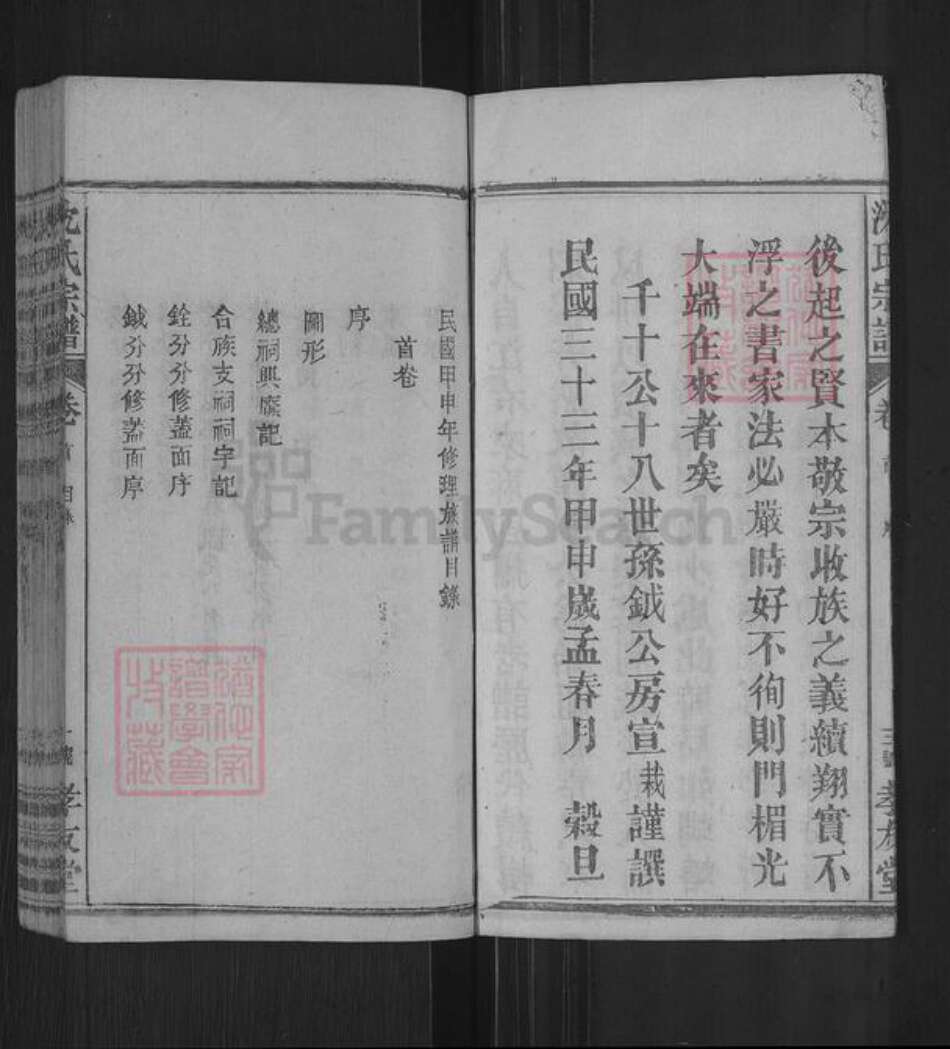 後起之賢本敬宗收族之義續翔實不
浮之書家法必嚴時好不徇則門楣光
大端在來者矣
千十公十八世孫鉞公房宣栽謹譔
民國三十三年甲申歲孟春月 穀旦
民國甲申年修理族譜目錄
首卷
序
圖形
總祠興廢記
合族支祠祠宇記
銓分分修蓋面序
鉞分分修蓋面序
沈氏宗譜
卷首 目錄
孝友堂
FamilySearch